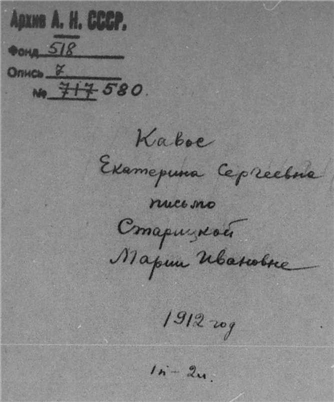 Архив А. Н. СССР.
Фонд 518
Опись 7
№ 717 580.
Кавос
Екатерина Сергеевна
письмо
Старицкой
Марии Ивановне
1912 год
1п – 2л.